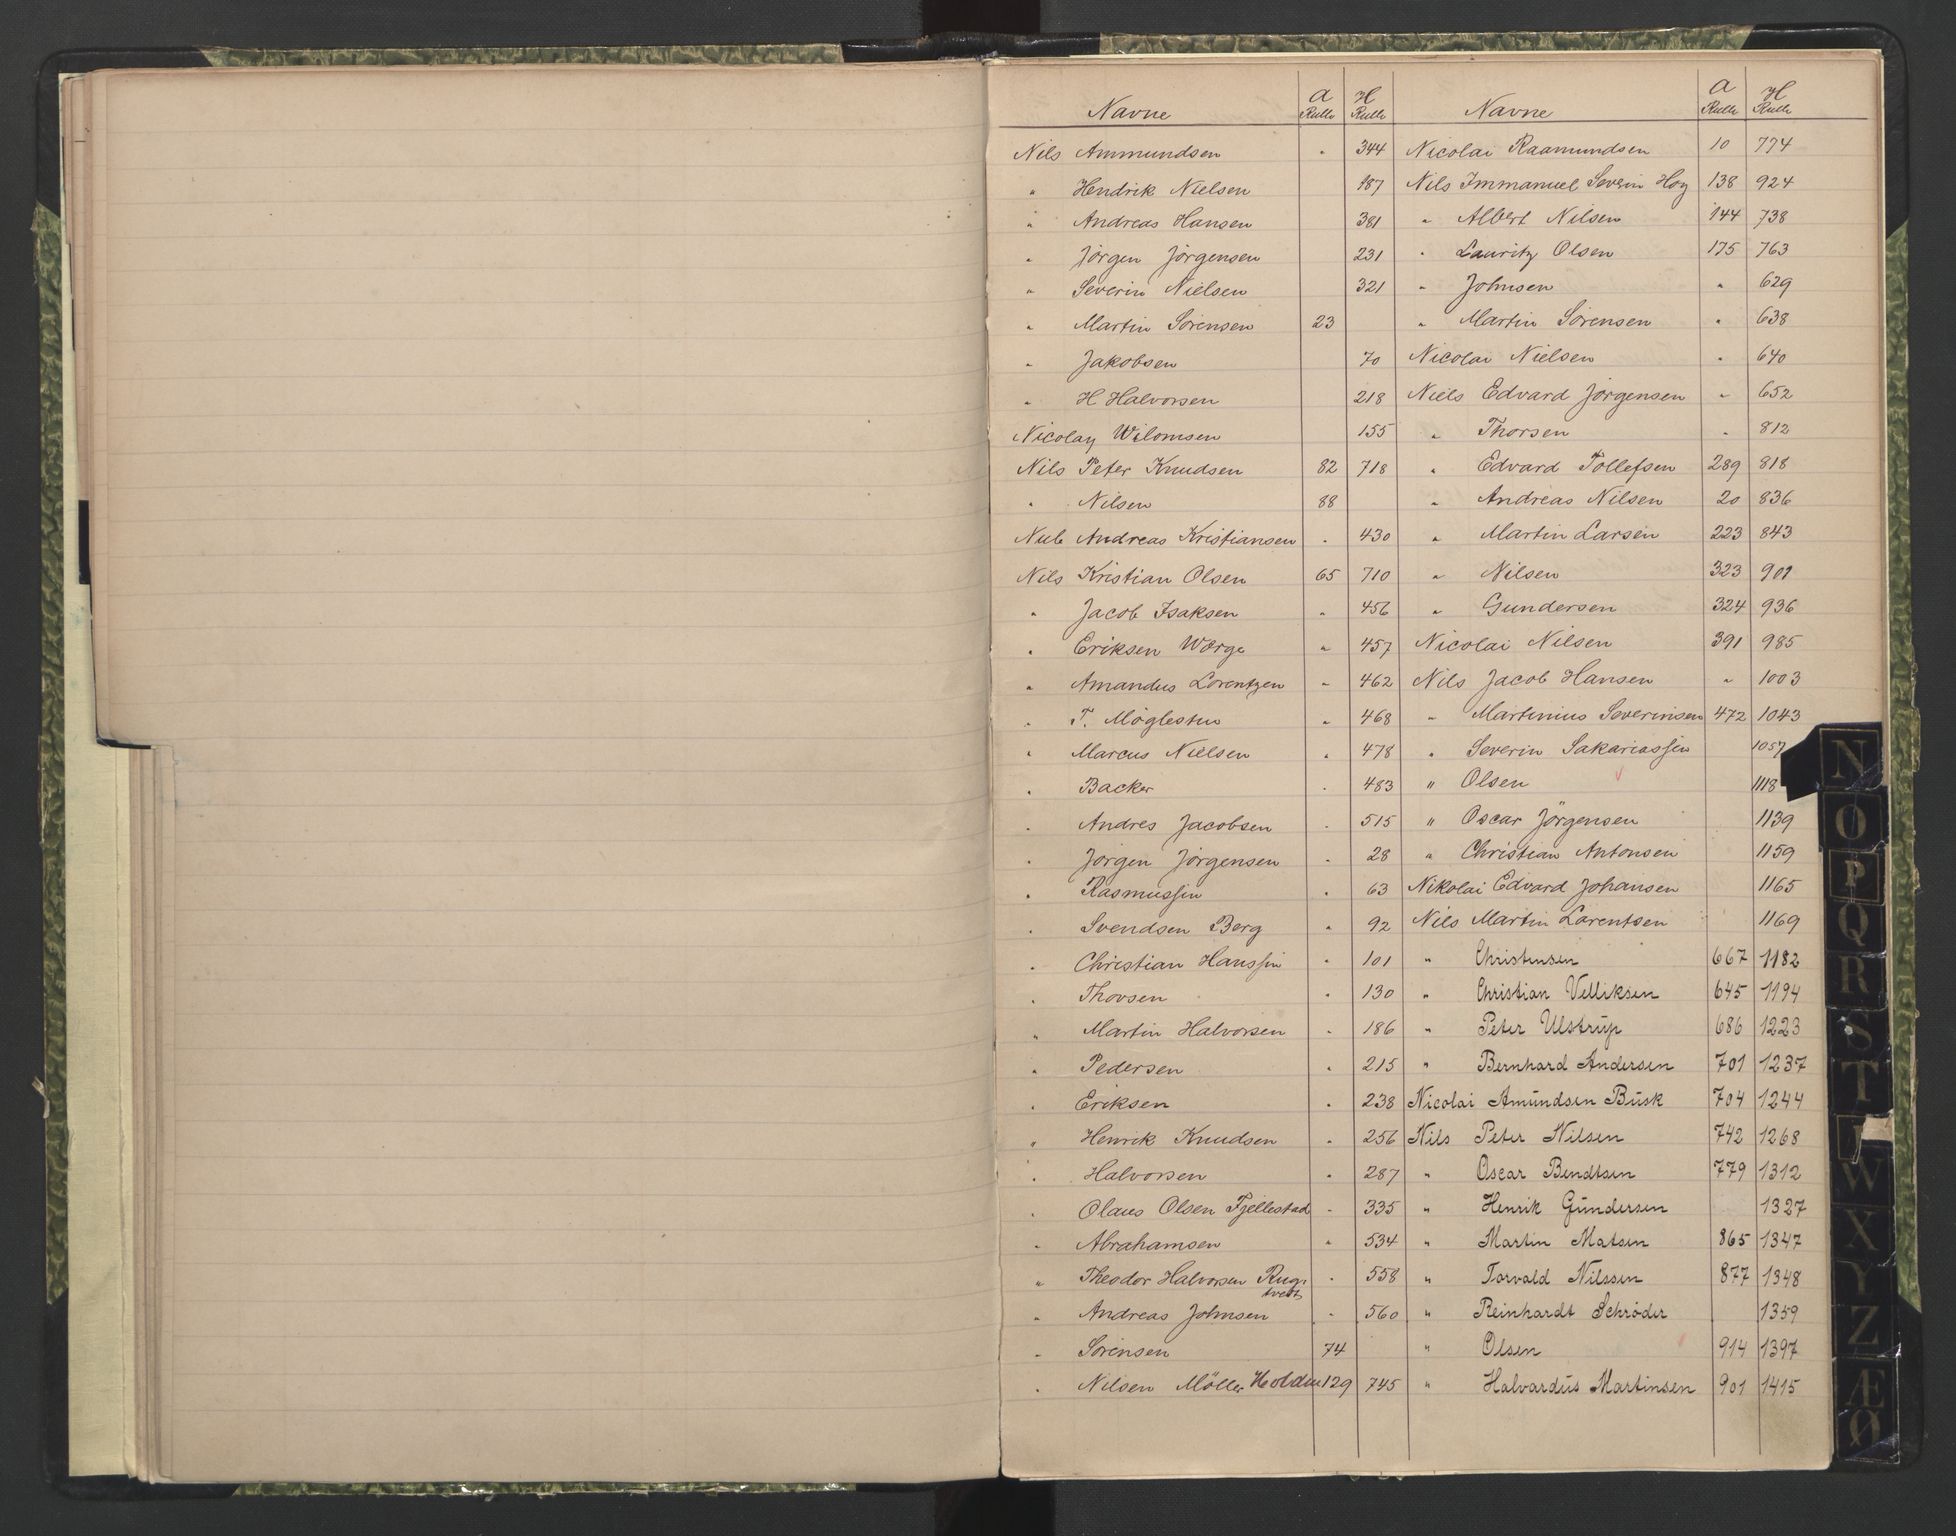 Navne A Rulle H Rulle Navne A Rulle H Rulle
Nils Ammundsen " 344
" Hendrik Nielsen 187
" Andreas Hansen 381
" Jørgen Jørgensen 231
" Severin Nielsen 321
" Martin Sørensen 23
" Jakobsen 70
" H Halvorsen 218
Nicolay Wilomsen 155
Nils Peter Knudsen 82 718
" Nilsen 88
Andreas Kristiansen " 430
Nils Kristian Olsen 65 710
" Jacob Isaksen " 456
" Eriksen Wærge " 457
" Amandus Lorentzen " 462
" T. Møglestue " 468
" Marcus Nielsen " 478
" Backer " 483
" Andres Jacobsen " 515
" Jørgen Jørgensen " 28
" Rasmussen " 63
" Svendsen Berg " 92
" Christian Hanssen " 101
" Thorsen " 130
" Martin Halvorsen " 186
" Pedersen " 215
" Eriksen " 238
" Henrik Knudsen " 256
" Halvorsen " 287
" Olaus Olsen Fjellestad " 335
" Abrahamsen " 534
" Theodor Halvorsen Rugtvedt " 558
" Andreas Johnsen " 560
" Sørensen 74
" Nilsen Møller Holden 129 745
Nicolai Raamundsen 10 774
Nils Immanuel Severin Høy 138 924
" Albert Nilsen 144 738
" Lauritz Olsen 175 763
" Johnsen " 629
" Martin Sørensen " 638
Nicolai Nielsen " 640
Niels Edvard Jørgensen " 652
" Thorsen " 812
" Edvard Tollefsen 289 818
" Andreas Nilsen 20 836
" Martin Larsen 223 843
" Nilsen 323 901
" Gundersen 324 936
Nicolai Nilsen 391 985
Nils Jacob Hansen " 1003
" Martinius Severinsen 472 1043
" Severin Sakariassen 1057
" Olsen 1118
" Oscar Jørgensen 1139
" Christian Antonsen 1159
Nikolai Edvard Johansen 1165
Nils Martin Larentsen 1169
" Christensen 667 1182
" Christian Velliksen 645 1194
" Peter Ulstrup 686 1223
" Bernhard Andersen 701 1237
Nicolai Amundsen Busk 704 1244
Nils Peter Nilsen 742 1268
" Oscar Bendtsen 779 1312
" Henrik Gundersen 1327
" Martin Matsen 865 1347
" Torvald Nilssen 877 1348
" Reinhardt Schrøder 1359
" Olsen 914 1397
" Halvardus Martinsen 901 1415
N
O
P
Q
R
S
T
W
X
Y
Z
Æ
Ø